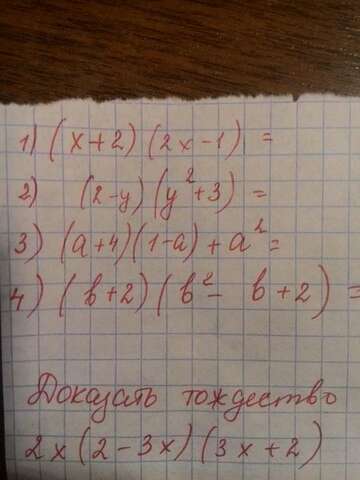 1) (x+2)(2x-1) =
2) (2-y)(y²+3) =
3) (a+4)(1-a)+a²=
4) (b+2)(b²- b+2) =
Доказать тождество
2x(2-3x)(3x+2)